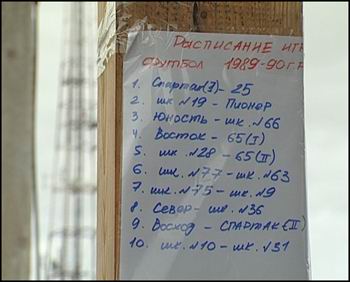 РАСПИСАНИЕ ИГР
ФУТБОЛ 1989-90 г.р.
1. Спартак(I) - 25
2. шк. №19 - Пионер
3. Юность - шк. №66
4. Восток - 65(I)
5. шк. №28 - 65(II)
6. шк. №77 - шк. №63
7. шк. №75 - шк. №9
8. Север - шк. №36
9. Восход - СПАРТАК(II)
10. шк. №10 - шк. №31